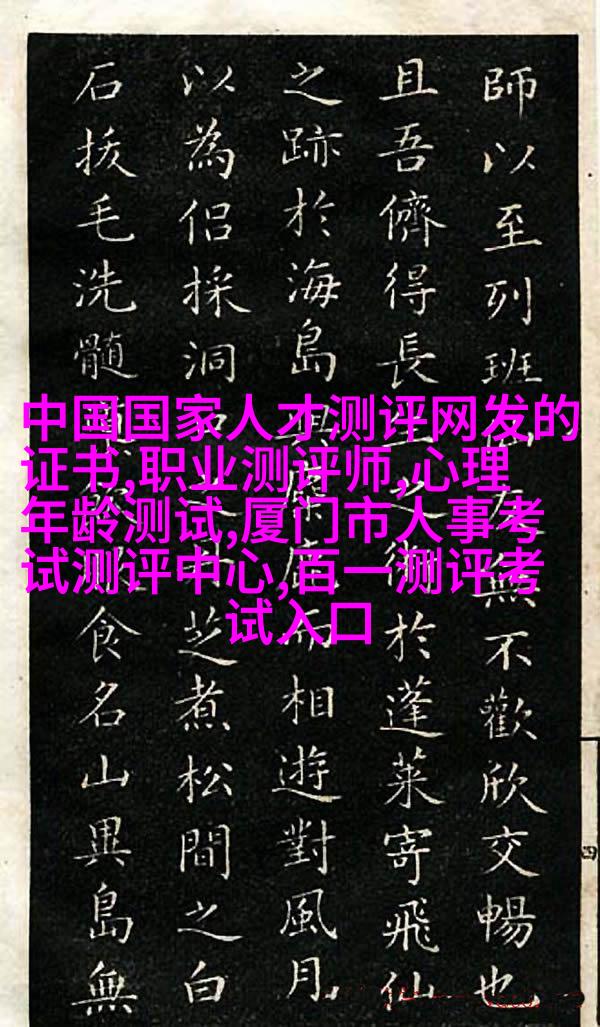 師以至列班右無不歡欣交暢也
且吾儕得長之術於蓬萊寄飛仙
之跡於海島與麋鹿而相遊對風月
以為侶採洞芝煮松間之白
石拔毛洗髓食名山異島無
中国国家人才测评网发的
证书,职业测评师,心理
年龄测试,厦门市人事考
试测评中心,百一测评考
试入口